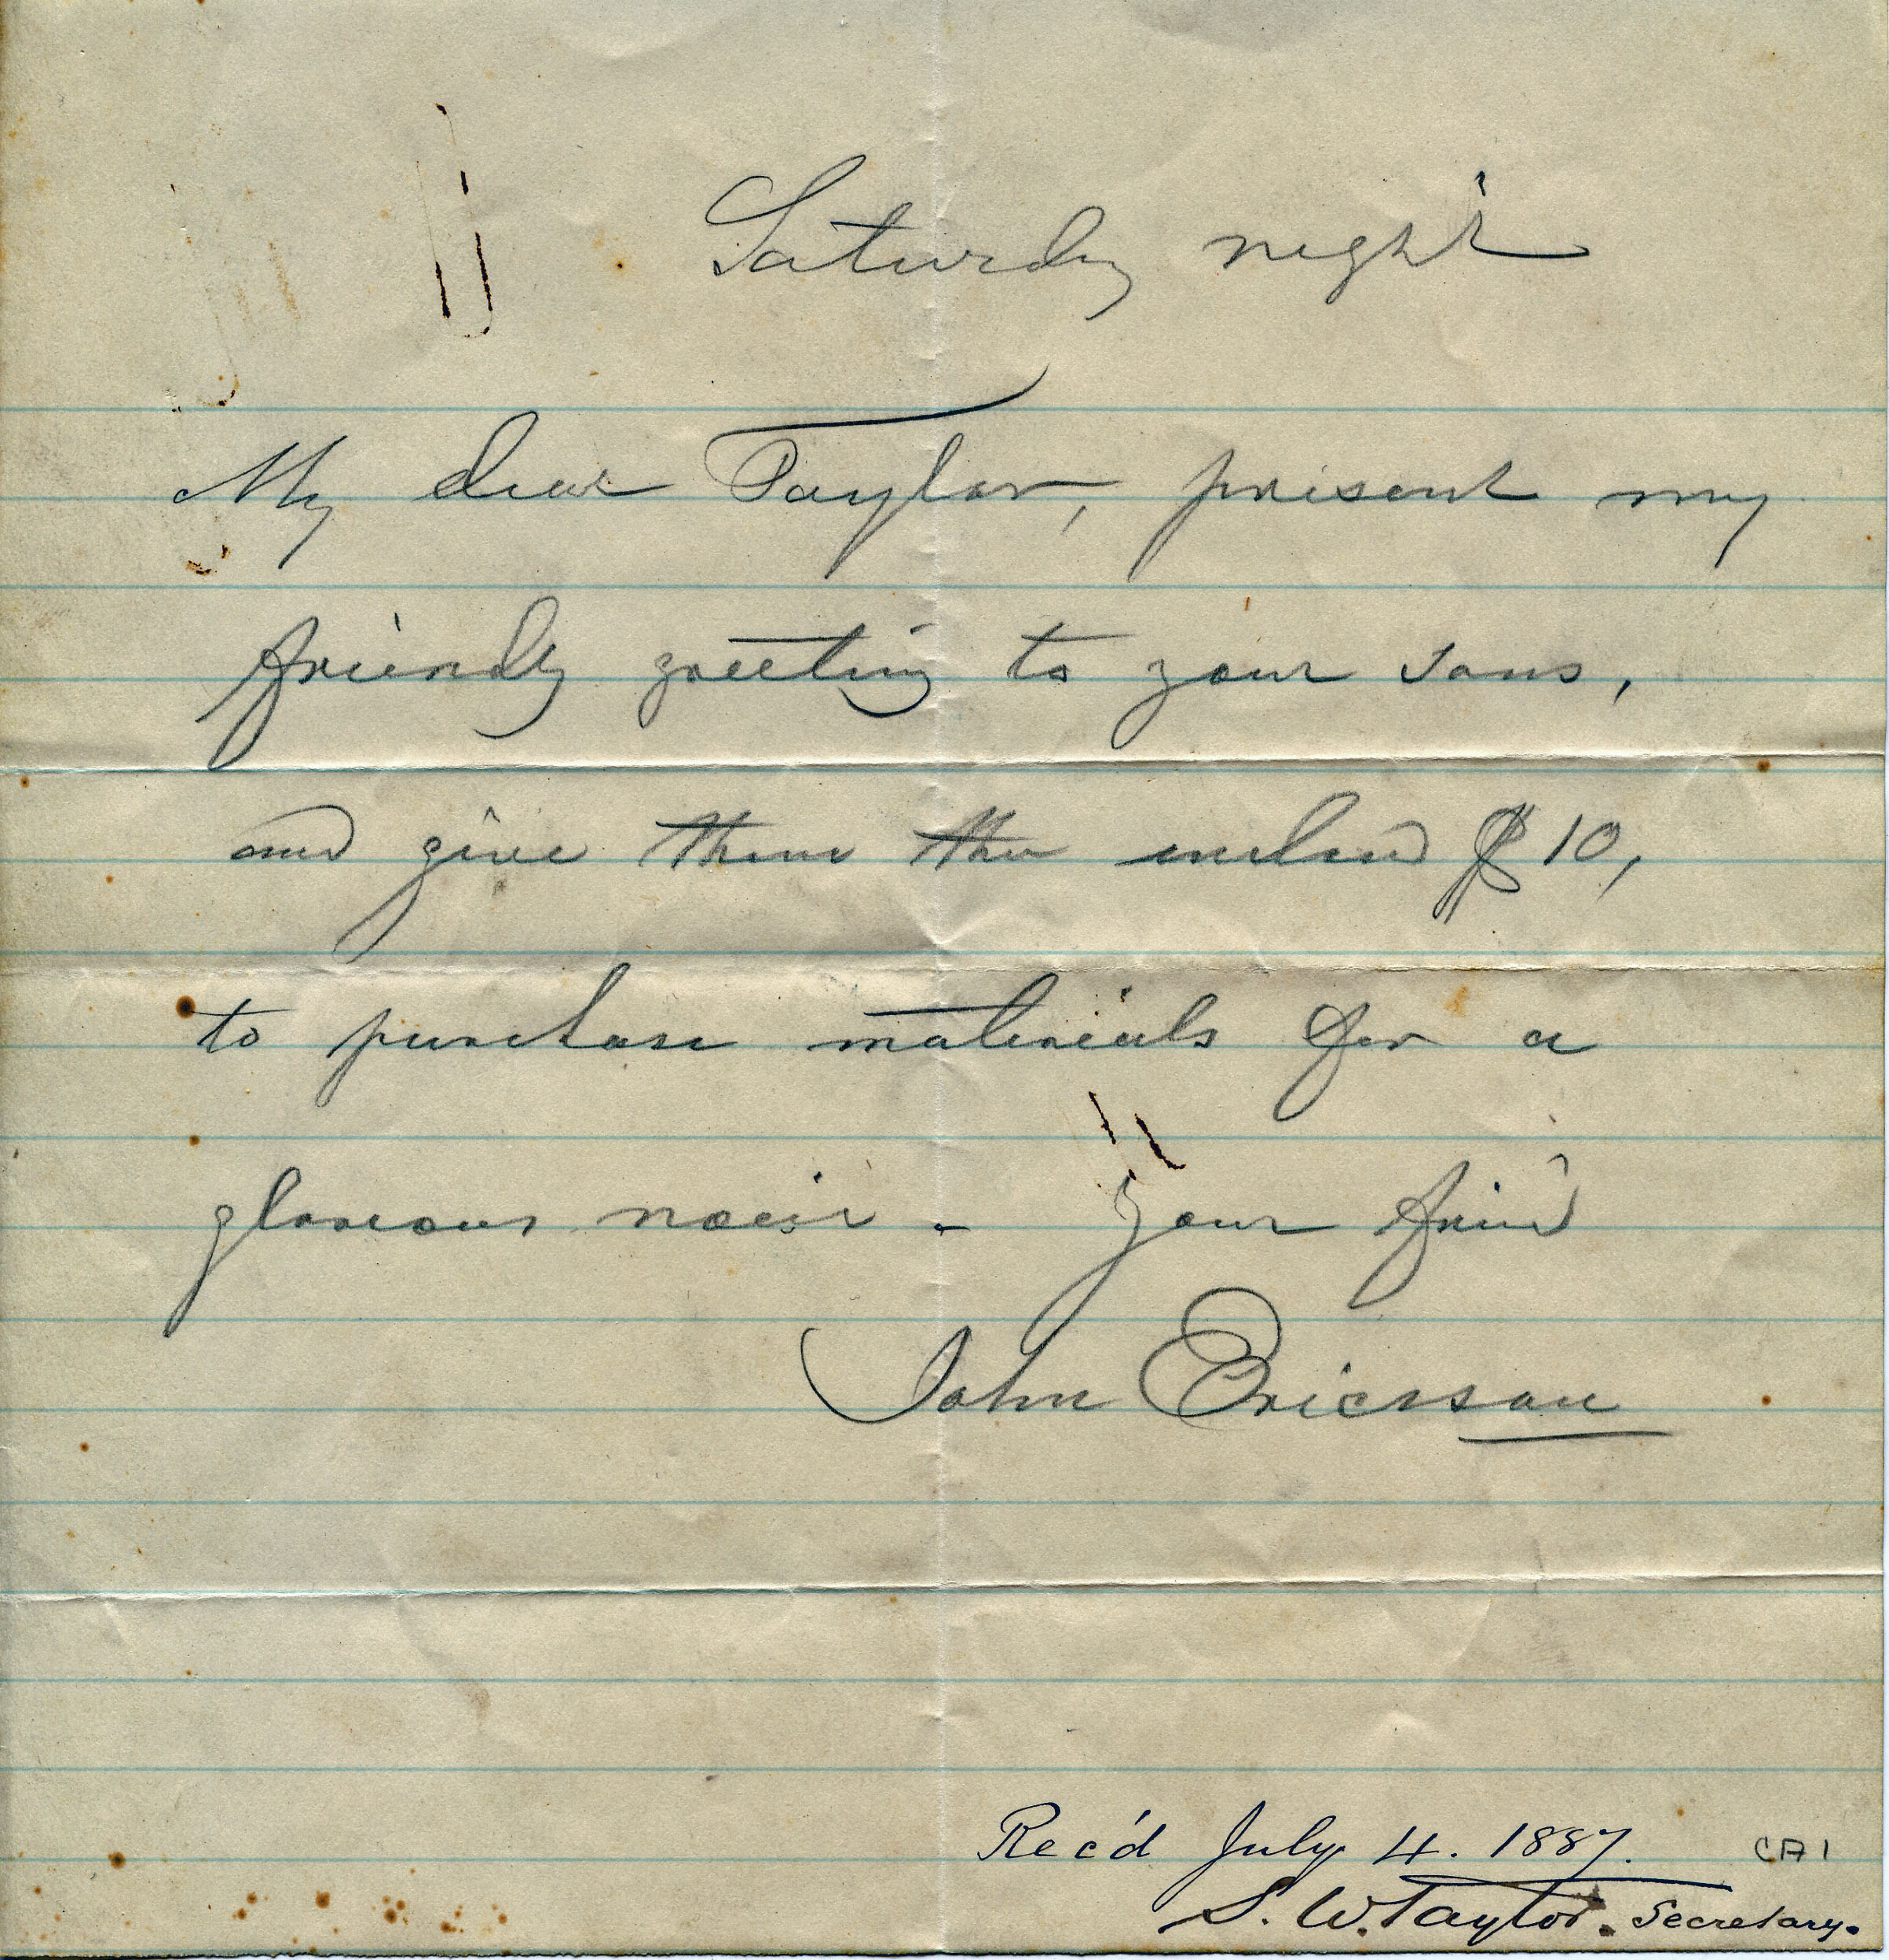 Saturday night
My dear Taylor, present my
friendly greeting to your sons,
and give them the enclosed $10,
to purchase materials for a
glorious noise - Your friend
John Ericsson
Rec'd July 4. 1887. CA1
S. W. Taylor. Secretary.